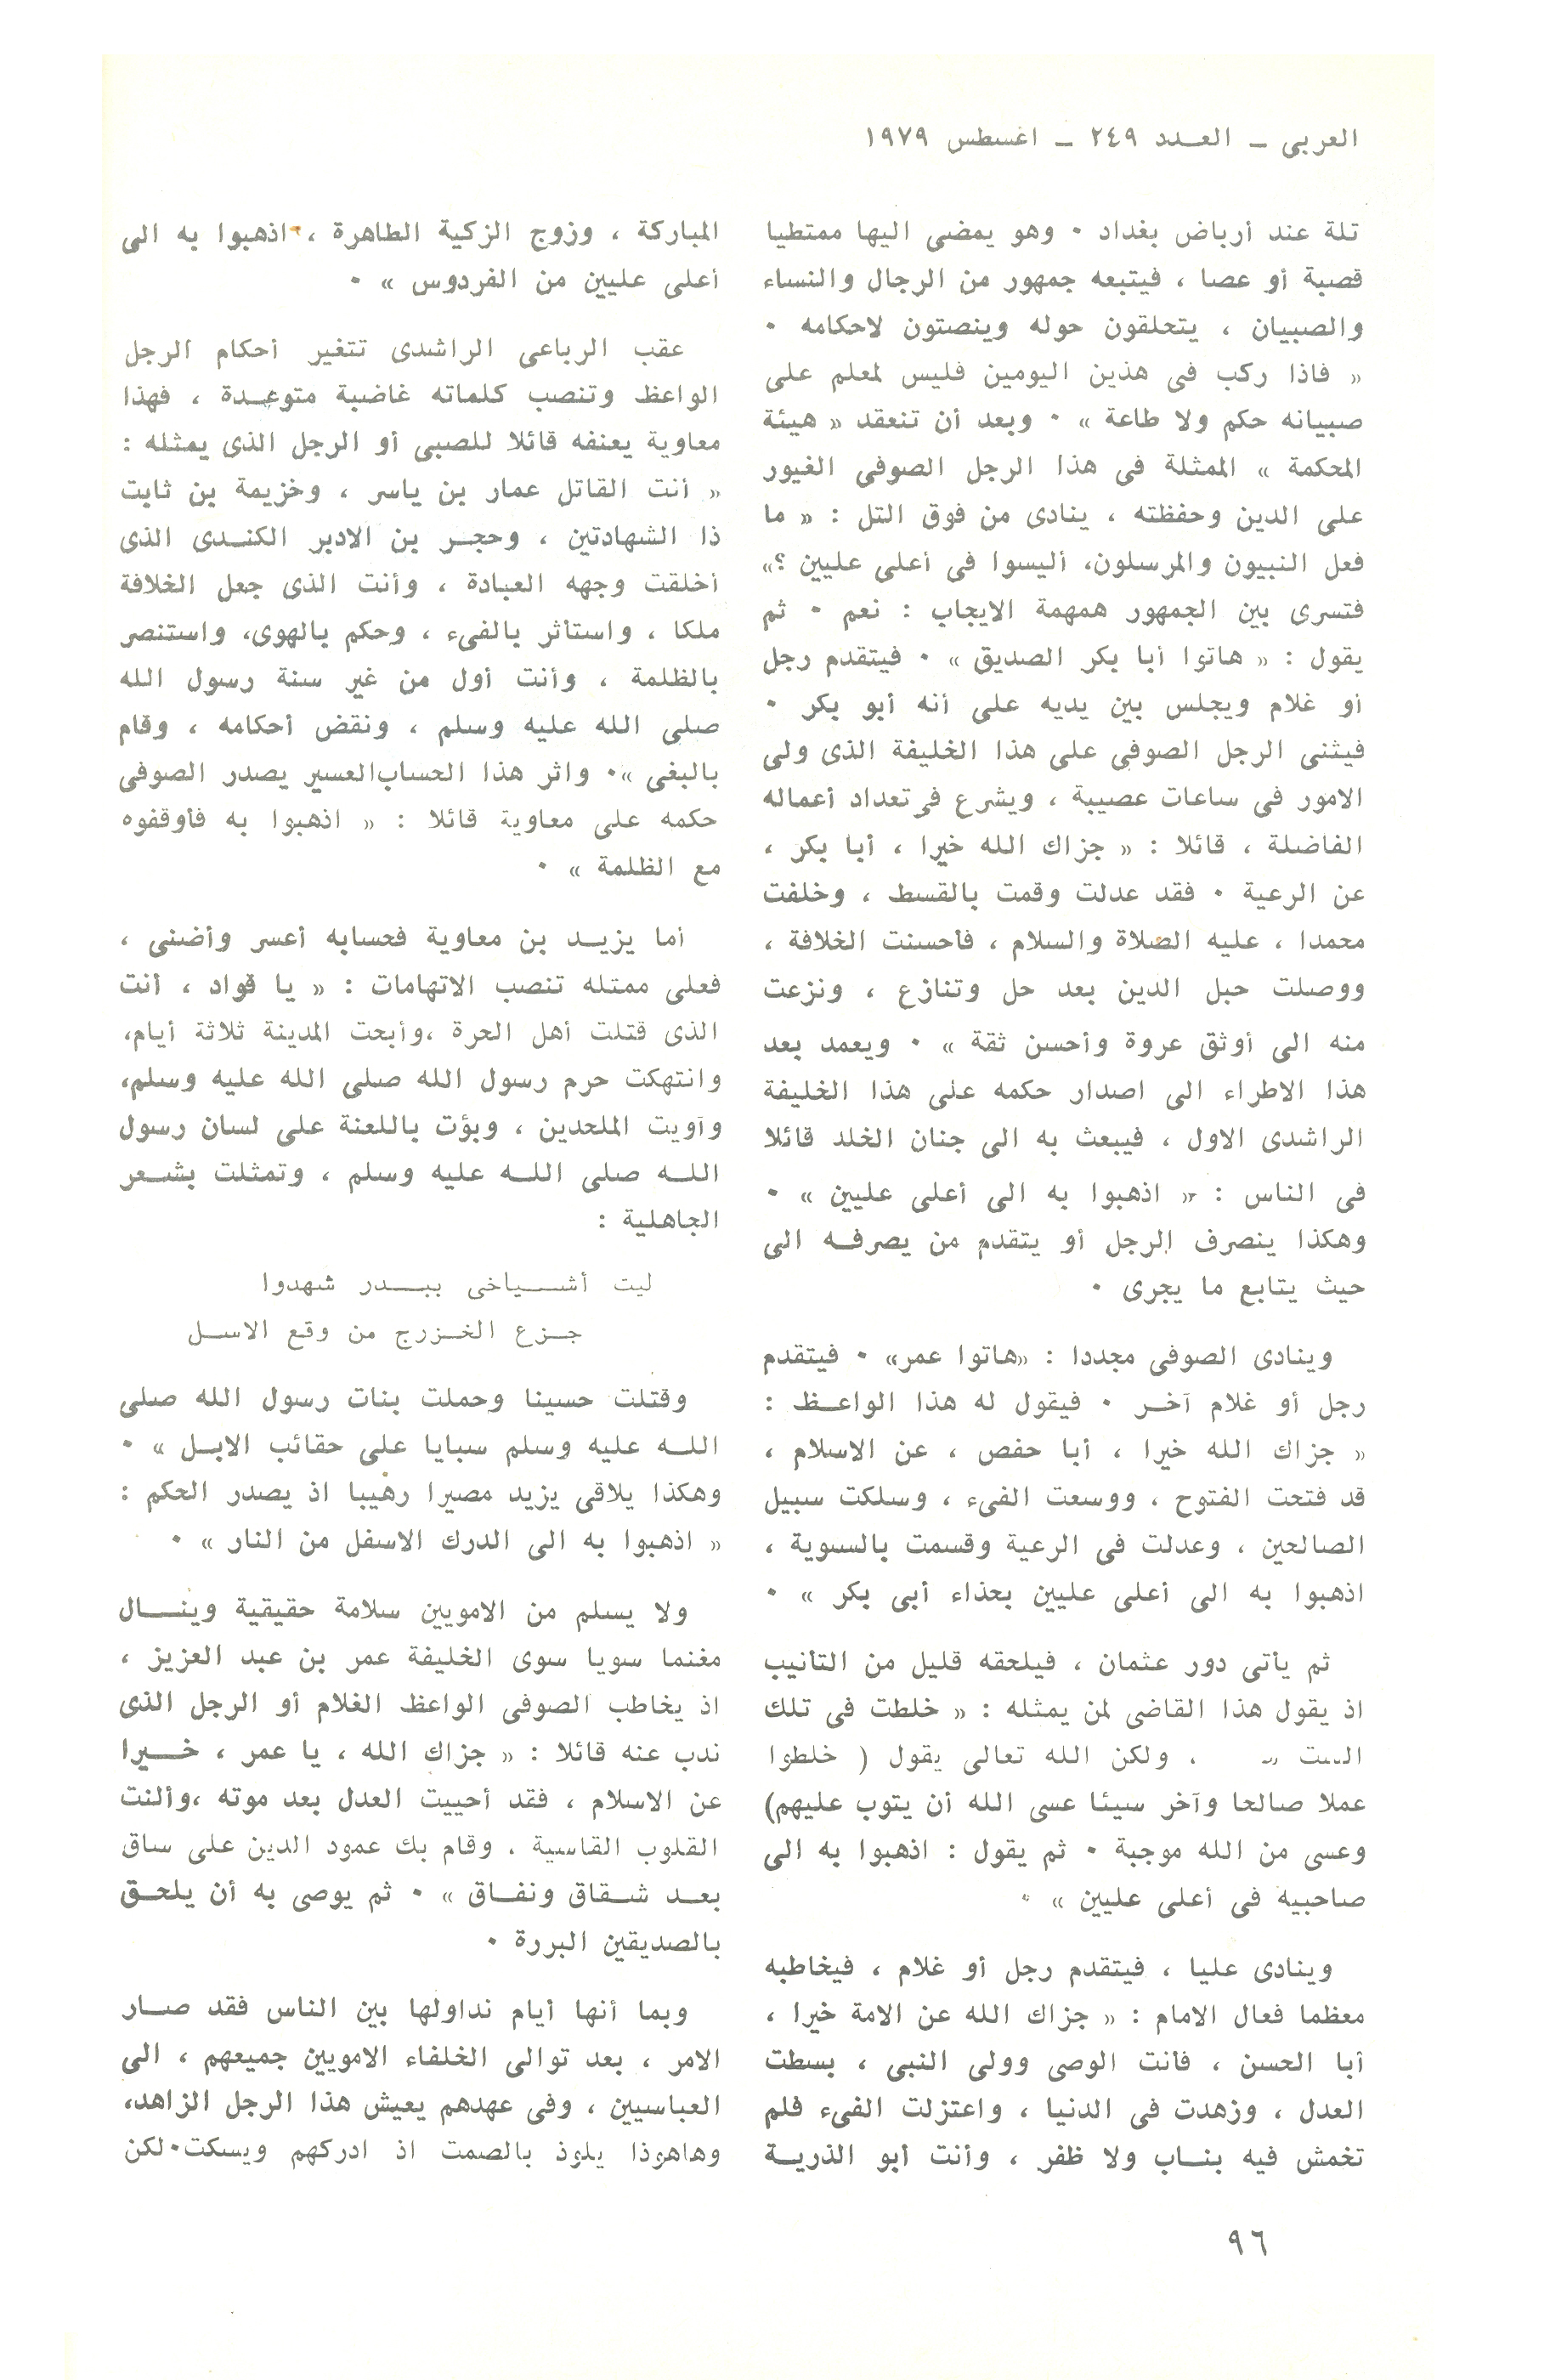 العربى – العـدد ٢٤٩ – اغسطس ١٩٧٩
تلة عند أرباض بغداد ٠ وهو يمضى اليها ممتطيا
قصبة أو عصا ، فيتبعه جمهور من الرجال والنساء
والصبيان ، يتحلقون حوله وينصتون لاحكامه ٠
« فاذا ركب فى هذين اليومين فليس لمعلم على
صبيانه حكم ولا طاعة » ٠ وبعد أن تنعقد « هيئة
المحكمة » الممثلة فى هذا الرجل الصوفى الغيور
على الدين وحفظته ، ينادى من فوق التل : « ما
فعل النبيون والمرسلون، أليسوا فى أعلى عليين ؟»
فتسرى بين الجمهور همهمة الايجاب : نعم ٠ ثم
يقول : « هاتوا أبا بكر الصديق » ٠ فيتقدم رجل
أو غلام ويجلس بين يديه على أنه أبو بكر ٠
فيثنى الرجل الصوفى على هذا الخليفة الذى ولى
الامور فى ساعات عصيبة ، ويشرع فى تعداد أعماله
الفاضلة ، قائلا : « جزاك الله خيرا ، أبا بكر ،
عن الرعية ٠ فقد عدلت وقمت بالقسط ، وخلفت
محمدا ، عليه الصلاة والسلام ، فأحسنت الخلافة ،
ووصلت حبل الدين بعد حل وتنازع ، ونزعت
منه الى أوثق عروة وأحسن ثقة » ٠ ويعمد بعد
هذا الاطراء الى اصدار حكمه على هذا الخليفة
الراشدى الاول ، فيبعث به الى جنان الخلد قائلا
فى الناس : « اذهبوا به الى أعلى عليين » ٠
وهكذا ينصرف الرجل أو يتقدم من يصرفـه الى
حيث يتابع ما يجرى ٠
وينادى الصوفى مجددا : «هاتوا عمر» ٠ فيتقدم
رجل أو غلام آخـر ٠ فيقول له هذا الواعـظ :
« جزاك الله خيرا ، أبا حفص ، عن الاسلام ،
قد فتحت الفتوح ، ووسعت الفىء ، وسلكت سبيل
الصالحين ، وعدلت فى الرعية وقسمت بالسوية ،
اذهبوا به الى أعلى عليين بحذاء أبى بكر » ٠
ثم يأتى دور عثمان ، فيلحقه قليل من التأنيب
اذ يقول هذا القاضى لمن يمثله : « خلطت فى تلك
، ولكن الله تعالى يقول ( خلطوا
عملا صالحا وآخر سيئا عسى الله أن يتوب عليهم)
وعسى من الله موجبة ٠ ثم يقول : اذهبوا به الى
صاحبيه فى أعلى عليين » ٠
وينادى عليا ، فيتقدم رجل أو غلام ، فيخاطبه
معظما فعال الامام : « جزاك الله عن الامة خيرا ،
أبا الحسن ، فأنت الوصى وولى النبى ، بسطت
العدل ، وزهدت فى الدنيا ، واعتزلت الفىء فلم
تخمش فيه بنـاب ولا ظفر ، وأنت أبو الذريـة
المباركة ، وزوج الزكية الطاهرة ، اذهبوا به الى
أعلى عليين من الفردوس » ٠
عقب الرباعى الراشدى تتغير أحكام الرجل
الواعظ وتنصب كلماته غاضبة متوعـدة ، فهذا
معاوية يعنفه قائلا للصبى أو الرجل الذى يمثله :
« أنت القاتل عمار بن ياسر ، وخزيمة بن ثابت
ذا الشهادتين ، وحجـر بن الادبر الكنـدى الذى
أخلقت وجهه العبادة ، وأنت الذى جعل الخلافة
ملكا ، واستأثر بالفىء ، وحكم بالهوى، واستنصر
بالظلمة ، وأنت أول من غير سنة رسول الله
صلى الله عليه وسلم ، ونقض أحكامه ، وقام
بالبغى »٠ واثر هذا الحساب العسير يصدر الصوفى
حكمه على معاوية قائلا : « اذهبوا به فأوقفوه
مع الظلمة » ٠
أما يزيـد بن معاوية فحسابه أعسر وأضنى ،
فعلى ممثله تنصب الاتهامات : « يا قواد ، أنت
الذى قتلت أهل الحرة ،وأبحت المدينة ثلاثة أيام،
وانتهكت حرم رسول الله صلى الله عليه وسلم،
وآويت الملحدين ، وبؤت باللعنة على لسان رسول
اللـه صلى اللـه عليه وسلم ، وتمثلت بشـعر
الجاهلية :
ليت أشـــياخى ببـــدر شهدوا
جـزع الخـزرج من وقع الاسـل
وقتلت حسينا وحملت بنات رسول الله صلى
اللـه عليه وسلم سبايا على حقائب الابـل » ٠
وهكذا يلاقى يزيد مصيرا رهيبا اذ يصدر الحكم :
« اذهبوا به الى الدرك الاسفل من النار » ٠
ولا يسلم من الامويين سلامة حقيقية وينـــال
مغنما سويا سوى الخليفة عمر بن عبد العزيز ،
اذ يخاطب الصوفى الواعظ الغلام أو الرجل الذى
ندب عنه قائلا : « جزاك الله ، يا عمر ، خــيرا
عن الاسلام ، فقد أحييت العدل بعد موته ،وألنت
القلوب القاسية ، وقام بك عمود الدين على ساق
بعـد شـقاق ونفـاق » ٠ ثم يوصى به أن يلحـق
بالصديقين البررة ٠
وبما أنها أيام نداولها بين الناس فقد صـار
الامر ، بعد توالى الخلفاء الامويين جميعهم ، الى
العباسيين ، وفى عهدهم يعيش هذا الرجل الزاهد،
وهاهوذا يلوذ بالصمت اذ ادركهم ويسكت٠لكن
٩٦